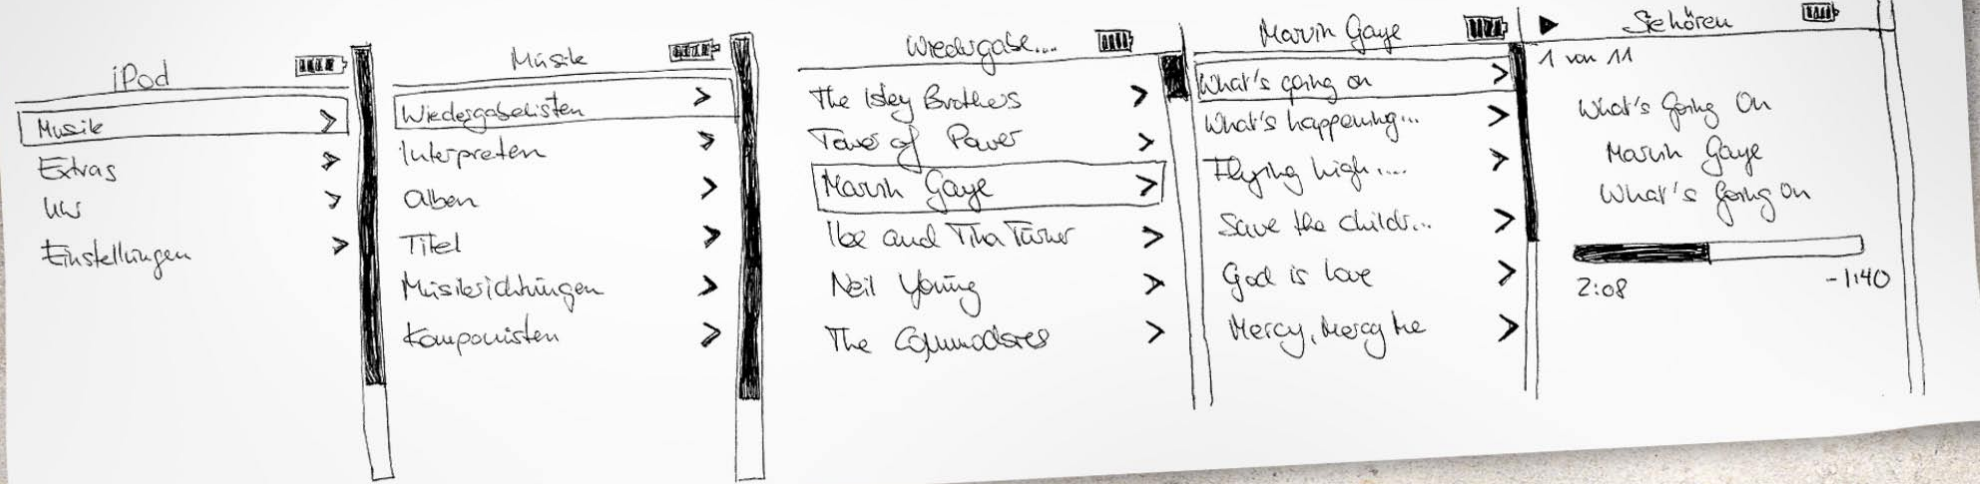 iPod
Musik
Extras
Einstellungen
Musik
Wiedergabelisten
Interpreten
Alben
Titel
Musikrichtungen
Komponisten
Wiedergabe...
The Isley Brothers
Tower of Power
Marvin Gaye
Ike and Tina Turner
Neil Young
The Commodores
Marvin Gaye
What's going on
What's happening...
Flying high....
Save the childr...
God is love
Mercy, Mercy me
Sie hören
1 von 11
What's Going On
Marvin Gaye
What's Going On
2:08
-1:40